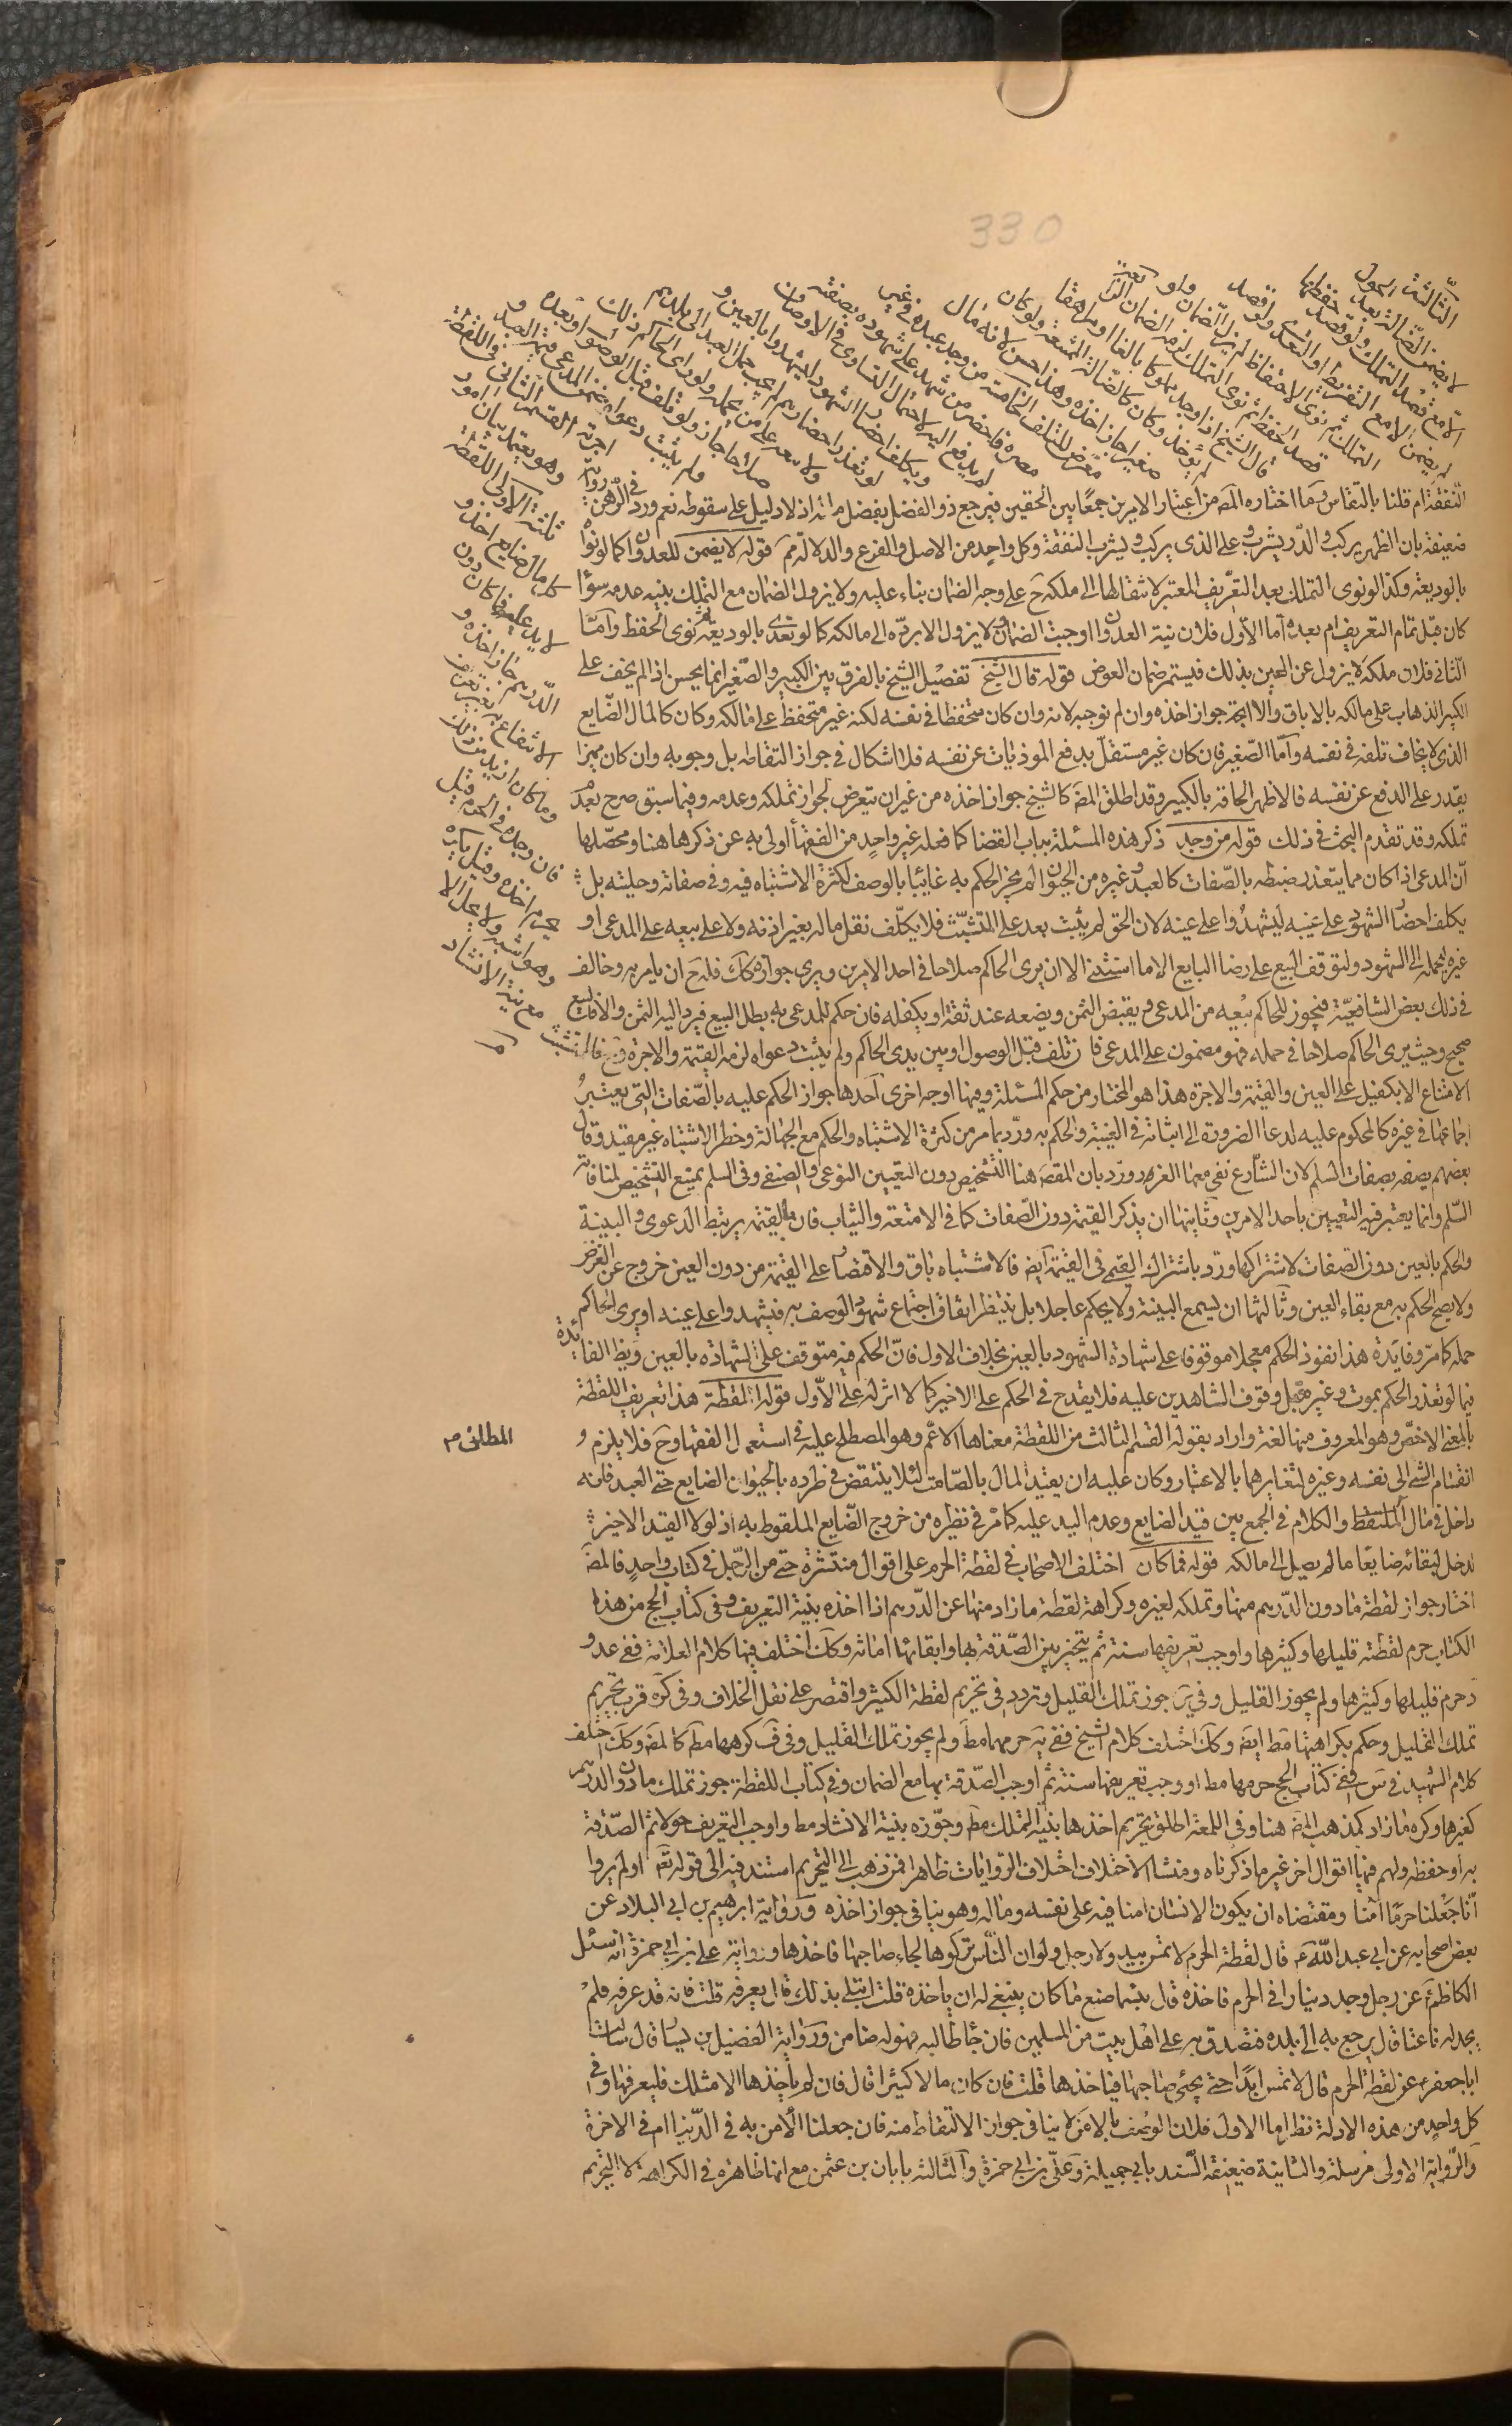 330
الثالثة
لا يضمن الضالة بعد الحول
الا مع قصد التملك ولو قصد حفظها
لم يضمن الا مع التفريط او التعدى ولو قصد
التملك ثم نوى الاحتفاظ لم يزل الضمان ولو
قصد الحفظ ثم نوى التملك لزمه الضمان الرابعة
قال الشيخ اذا وجد مملوكا بالغا او مراهقا
لم يؤخذ وكان كالضالة الممتنعة ولو كان
صغيرا جاز اخذه وهذا حسن لانه مال
معرض للتلف الخامسة من وجد عبده فى غير
مصره فاحضر من شهد على شهوده بصفته
لم يدفع اليه لاحتمال التساوى فى الاوصاف
ويكلف احضار الشهود ليشهدوا بالعين و
لو تعذر احضارهم لم يجب حمل العبد الى بلدهم
ولا بيعه على من يحمله ولو راى الحاكم ذلك
صلاحا جاز ولو تلف قبل الوصول او بعده و
لم يثبت دعواه ضمن المدعى قيمة العبد و
اجرته القسم الثانى فى اللقطة
وهو يعتمد بيان امور
ثلثة الاول اللقطة
كل مال ضايع اخذ و
لا يد عليه فما كان دون
الدرهم جاز اخذه و
الانتفاع به بغير تعريف
وما كان ازيد من ذلك
فان وجد فى الحرم قيل
يحرم اخذه وقيل يكره
وهو اشبه ولا يحل الا
مع نية الانشاد
النفقة ام قلنا بالتقاس وما اختاره المص من اعتبار الامرين جمعا بين الحقين فيرجع ذو الفضل بفضل ماله اذ لا دليل على سقوطه نعم ورد فى الرهن رواية
ضعيفة بان الظهر يركب والدر يشرب وعلى الذى يركب ويشرب النفقة وكل واحد من الاصل والفرع والدلالة مم قوله لا يضمن للعدوان كما لو نواه
بالوديعة وكذا لو نوى التملك بعد التعريف المعتبر لانتقالها الى ملكه ح على وجه الضمان بناء عليه ولا يزول الضمان مع التملك بنيه عدمه سواء
كان قبل تمام التعريف ام بعده اما الاول فلان نية العدوان اوجبت الضمان ولا يزول الا برده الى مالكه كما لو تعدى بالوديعة ثم نوى الحفظ واما
الثانى فلان ملكه لا يزول عن العين بذلك فيستمر ضمان العوض قوله قال الشيخ تفصيل الشيخ بالفرق بين الكبير والصغير انما يحسن اذا لم يخف على
الكبير الذهاب على مالكه بالاباق والا اتجه جواز اخذه وان لم نوجبه لانه وان كان متحفظا فى نفسه لكنه غير متحفظ على مالكه وكان كالمال الضايع
الذى لا يخاف تلفه فى نفسه واما الصغير فان كان غير مستقل بدفع الموذيات عن نفسه فلا اشكال فى جواز التقاطه بل وجوبه وان كان مميزا
يقدر على الدفع عن نفسه فالاظهر الحاقه بالكبير وقد اطلق المص كالشيخ جواز اخذه من غير ان يتعرض لجواز تملكه وعدمه وفيما سبق صرح بعدم
تملكه وقد تقدم البحث فى ذلك قوله من وجد ذكر هذه المسئلة بباب القضا كما فعله غير واحد من الفقهاء اولى به عن ذكرها هنا ومحصلها
ان المدعى اذا كان مما يتعذر ضبطه بالصفات كالعبد وغيره من الحيوان لم يجز الحكم به غائبا بالوصف لكثرة الاشتباه فيه وفى صفاته وحليته بل
يكلف احضار الشهود على عينه ليشهدوا على عينه لان الحق لم يثبت بعد على المتشبث فلا يكلف نقل ماله بغير اذنه ولا على بيعه على المدعى او
غيره ليحمله الى الشهود ولتوقف البيع على رضا البايع الا ما استثنى الا ان يرى الحاكم صلاحا فى احد الامرين ويرى جوازه كذلك فله ح ان يامر به وخالف
فى ذلك بعض الشافعية فيجوز للحاكم بيعه من المدعى ويقبض الثمن ويضعه عند ثقة او يكفله فان حكم للمدعى به بطل البيع فيرد اليه الثمن والا فالبيع
صحيح وحيث يرى الحاكم صلاحا فى حمله فهو مضمون على المدعى فان تلف قبل الوصول او بين يدى الحاكم ولم يثبت دعواه لزمه القيمة والاجرة وح فالمتشبث
الامتناع الا بكفيل على العين والقيمة والاجرة هذا هو المختار من حكم المسئلة وفيها اوجه اخرى احدها جواز الحكم عليه بالصفات التى يعتبر
اجتماعها فى غيره كالمحكوم عليه لدعا الضرورة الى اثباته فى الغيبة والحكم به ورد بما مر من كثرة الاشتباه والحكم مع الجهالة وخطر الاشتباه غير مقيد وقال
بعضهم يصفه بصفات السلم لان الشارع نفى معها الغرر ورد بان المقصد هنا التشخيص دون التعيين النوعى والصنفى وفى السلم يمتنع التشخيص لمنافاته
السلم وانما يعتبر فيه التعيين باحد الامرين وثانيها ان يذكر القيمة دون الصفات كما فى الامتعة والثياب فان بالقيمة يرتبط الدعوى والبينة
والحكم بالعين دون الصفات لاشتراكها ورد باشتراك القيم فى القيمة ايض فالاشتباه باق والاقتصار على القيمة من دون العين خروج عن الغرض
ولا يصح الحكم به مع بقاء العين وثالثها ان يسمع البينة ولا يحكم عاجلا بل ينتظر اتفاق اجتماع شهود الوصف به فيشهدوا على عينه او يرى الحاكم
حمله كما مر وفايدة هذا نفوذ الحكم معجلا موقوفا على شهادة الشهود بالعين بخلاف الاول فان الحكم فيه متوقف على الشهادة بالعين ويظهر الفايدة
فيما لو تعذر الحكم بموت وغيره قبل وقوف الشاهدين عليه فلا يقدح فى الحكم على الاخير كما لا اثر له على الاول قوله اللقطة هذا تعريف اللقطة
بالمعنى الاخص وهو المعروف منها لغة واراد بقوله القسم الثالث من اللقطة معناها الاعم وهو المصطلح عليه فى استعمال الفقهاء وح فلا يلزم
المطلق م
انقسام الشئ الى نفسه وغيره لتغايرهما بالاعتبار وكان عليه ان يقيد المال بالصامت لئلا ينتقض فى طرده بالحيوان الضايع حتى العبد فانه
داخل فى مال الملتقط والكلام فى الجمع بين قيد الضايع وعدم اليد عليه كما مر فى نظيره من خروج الضايع الملقوط به اذ لولا القيد الاخير
لدخل لبقائه ضايعا ما لم يصل الى مالكه قوله فما كان اختلف الاصحاب فى لقطة الحرم على اقوال منتشرة حتى من الرجل فى كتاب واحد فالمص
اختار جواز لقطة ما دون الدرهم منها وتملكه لغيره وكراهة لقطة ما زاد منها عن الدرهم اذا اخذه بنية التعريف وفى كتاب الحج من هذا
الكتاب حرم لقطته قليلها وكثيرها واوجب تعريفها سنة ثم يتخير بين الصدقة بها وابقائها امانة وكذلك اختلف فيها كلام العلامة ففى عد و
د حرم قليلها وكثيرها ولم يجوز القليل وفى ير جوز تملك القليل وتردد فى تحريم لقطة الكثير واقتصر على نقل الخلاف وفى كره قرب تحريم
تملك القليل وحكم بكراهتها مط ايض وكذلك اختلف كلام الشيخ ففى ية حرمها مط ولم يجوز تملك القليل وفى ف كرهها مط كالمص وكذلك اختلف
كلام الشهيد فى س ففى كتاب الحج حرمها مط واوجب تعريفها سنة ثم اوجب الصدقة بها مع الضمان وفى كتاب اللقطة جوز تملك ما دون الدرهم
كغيرها وكره ما زاد كمذهب المص هنا وفى اللمعة اطلق تحريم اخذها بنية التملك مط وجوزه بنية الانشاد مط واوجب التعريف حولا ثم الصدقة
به او حفظه ولهم فيها اقوال اخر غير ما ذكرناه ومنشا الاختلاف اختلاف الروايات ظاهرا فمن ذهب الى التحريم استند فيه الى قوله تع اولم يروا
انا جعلنا حرما امنا ومقتضاه ان يكون الانسان امنا فيه على نفسه وماله وهو ينافى جواز اخذه ورواية ابرهيم بن ابى البلاد عن
بعض اصحابه عن ابى عبد الله ع قال لقطة الحرم لا تمس بيد ولا رجل ولو ان الناس تركوها لجاء صاحبها فاخذها ورواية على بن ابى حمزة انه سئل
الكاظم ع عن رجل وجد دينارا فى الحرم فاخذه قال بئس ما صنع ما كان ينبغى له ان ياخذه قلت ابتلى بذلك قال يعرفه قلت فانه قد عرفه فلم
يجد له باغيا قال يرجع به الى بلده فيتصدق به على اهل بيت من المسلمين فان جاء طالبه فهو له ضامن ورواية الفضيل بن يسار قال سالت
ابا جعفر ع عن لقطة الحرم قال لا تمس ابدا حتى يجئ صاحبها فياخذها قلت فان كان مالا كثيرا قال فان لم ياخذها الا مثلك فليعرفها وفى
كل واحد من هذه الادلة نظر اما الاول فلان الوصف بالامن لا ينافى جواز الالتقاط منه فان جعلنا الامن به فى الدنيا ام فى الاخرة
والرواية الاولى مرسلة والثانية ضعيفة السند بابى جميلة وعلى بن ابى حمزة والثالثة بابان بن عثمن مع انها ظاهرة فى الكراهة لا التحريم